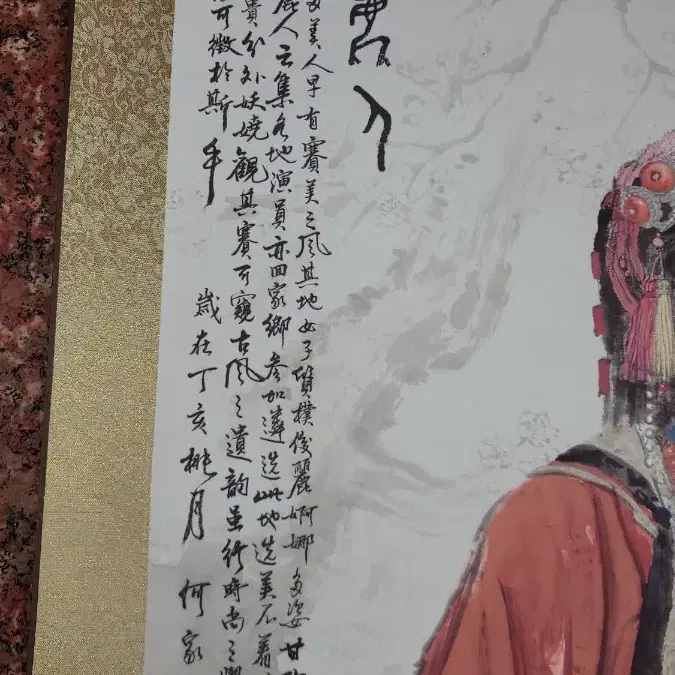 人
美人早有賽美之風其地女子質樸俊麗婀娜多姿甘
麗人云集各地演員亦回家鄉參加遴選此地選美不着
貴分外妖嬈觀其賽可窺古風之遺韻虽行時尚之
可徵於斯年
歲在丁亥桃月何家